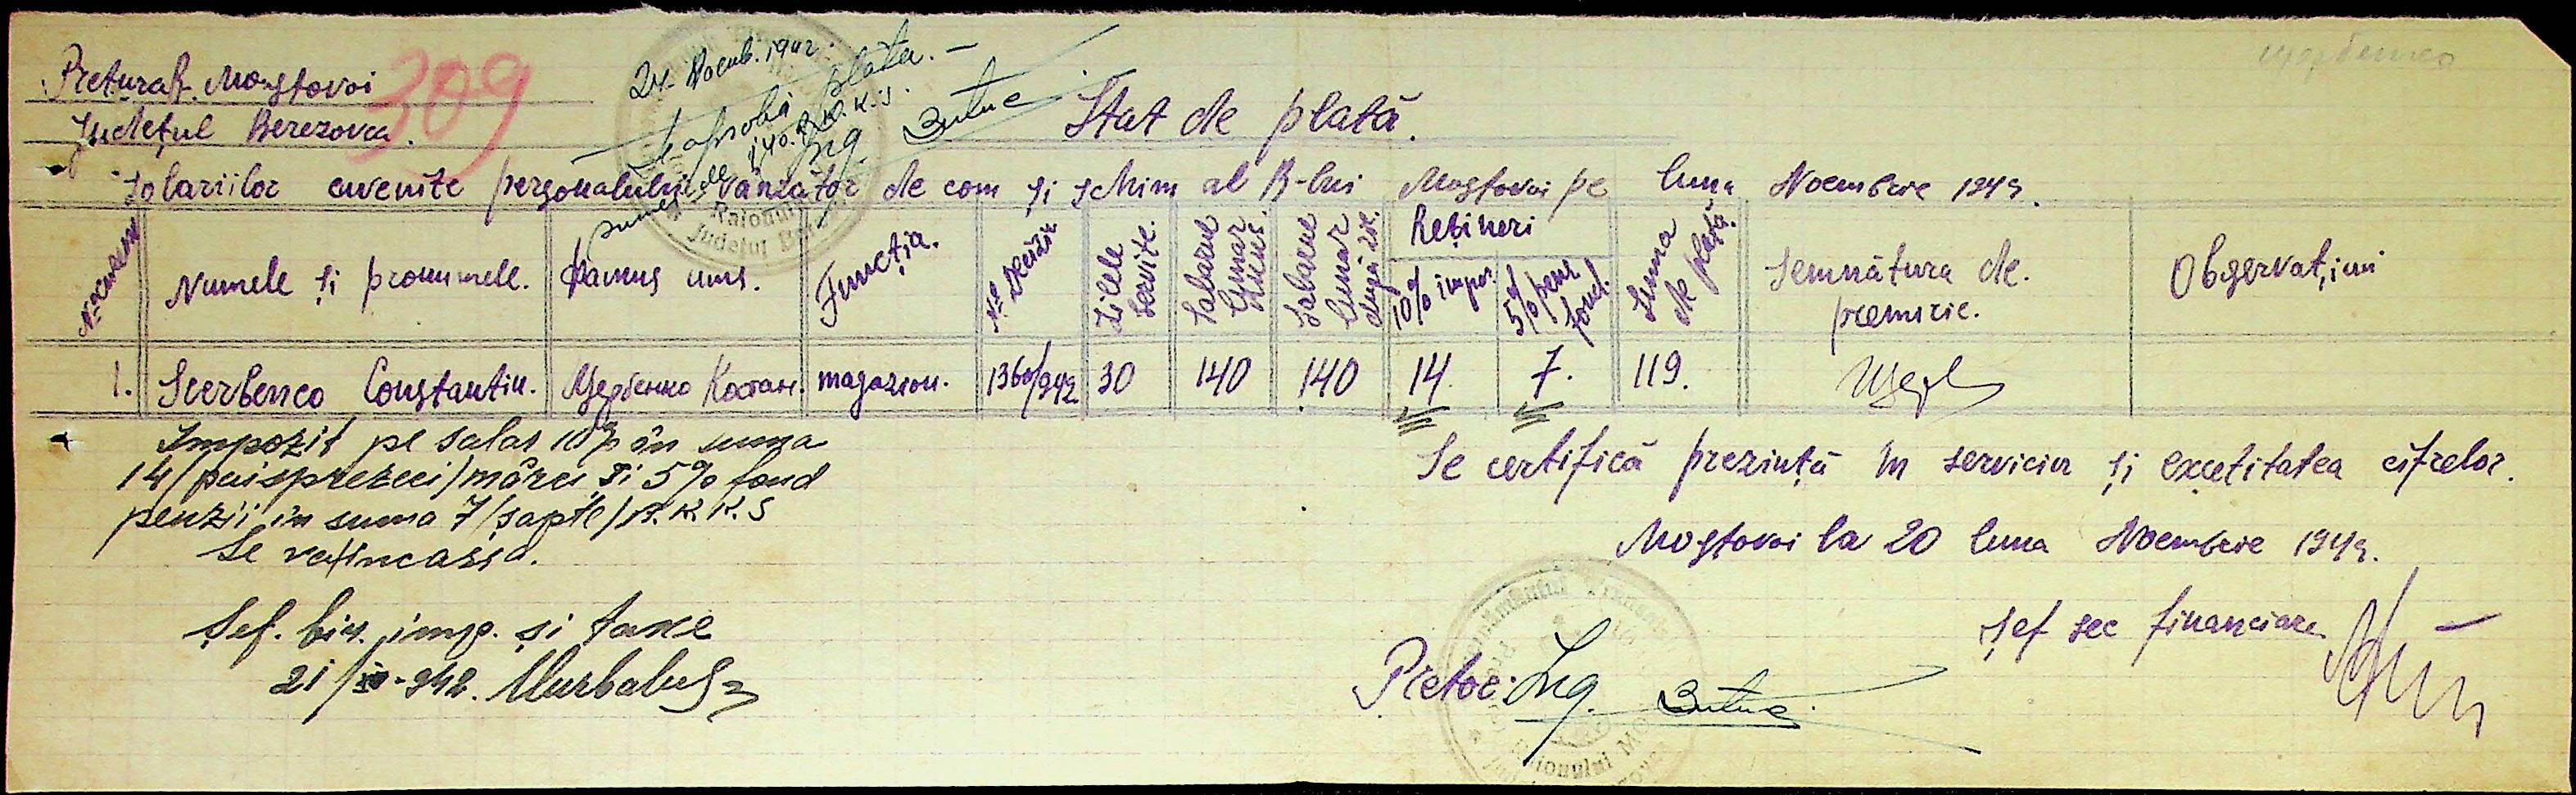 Pretura R. Mostovoi
Județul Berezovca.
309
24 Noemb. 1942.
Se aprobă plata
Ing. Butuc
Щербенко
Stat de plată.
Salariilor cuvenite personalului vânzător de com și schim al R-lui Mostovoi pe luna Noembrie 1942.
Nº curent
Numele și pronumele.
Funcția.
Nº Decizii
Zilele servite.
Salarue lunar
Salarue lunar după zile.
Rețineri
10% impoz.
5% pens fond.
Suma de plată.
Semnătura de premire.
Observațiuni
1. Scerbenco Constantin. Щербенко Констан. magazion. 1360/942 30 140 140 14 7. 119.
Impozit pe salar 10% în suma
14/paisprezeci/mărci și 5% fond
penzii în suma 7/șapte/R.K.K.S
Se va încasa.
Șef. bir. imp. și taxe
21/XI-942.
Se certifică prezința în serviciu și exactitatea cifrelor.
Mostovoi la 20 luna Noembrie 1942.
Șef sec financiare
Pretor: Ing. Butuc
Raionului
Județul